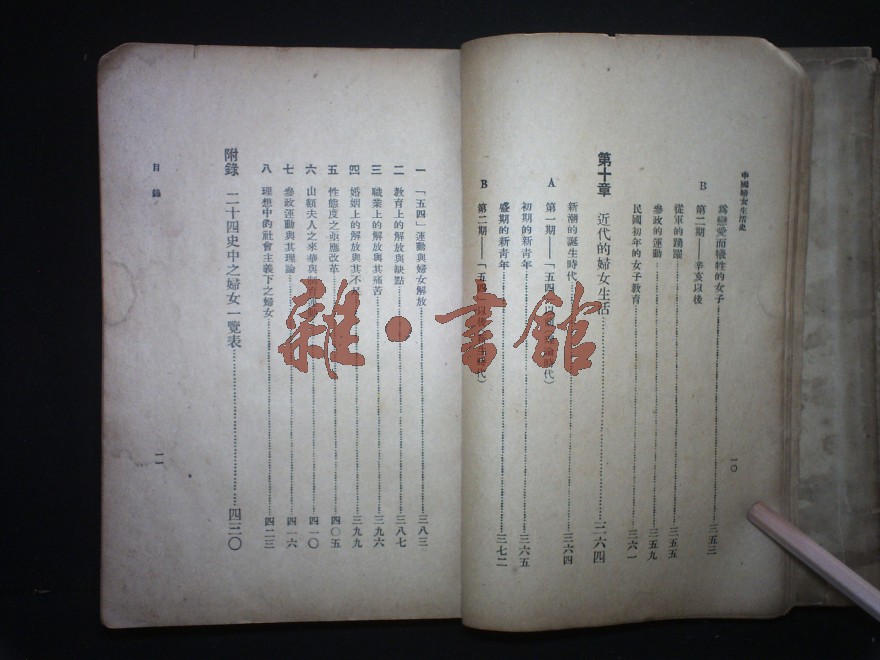 中國婦女生活史
爲戀愛而犧牲的女子……三五三
B 第二期——辛亥以後
從軍的踴躍……三五五
參政的運動……三五九
民國初年的女子教育……三六一
第十章 近代的婦女生活……三六四
新潮的誕生時代……三六四
A 第一期——「五四」以
代）
初期的新青年……三六五
盛期的新青年……三七二
B 第二期——「五四」以後
代）
一〇
一 「五四」運動與婦女解放……三八三
二 教育上的解放與缺點……三八七
三 職業上的解放與其痛苦……三九六
四 婚姻上的解放與其不……三九九
五 性態度之亟應改革……四〇五
六 山額夫人之來華與……四一〇
七 參政運動與其理論……四一六
八 理想中的社會主義下之婦女……四二三
附錄 二十四史中之婦女一覽表……四三〇
目錄
一一
雜·書館